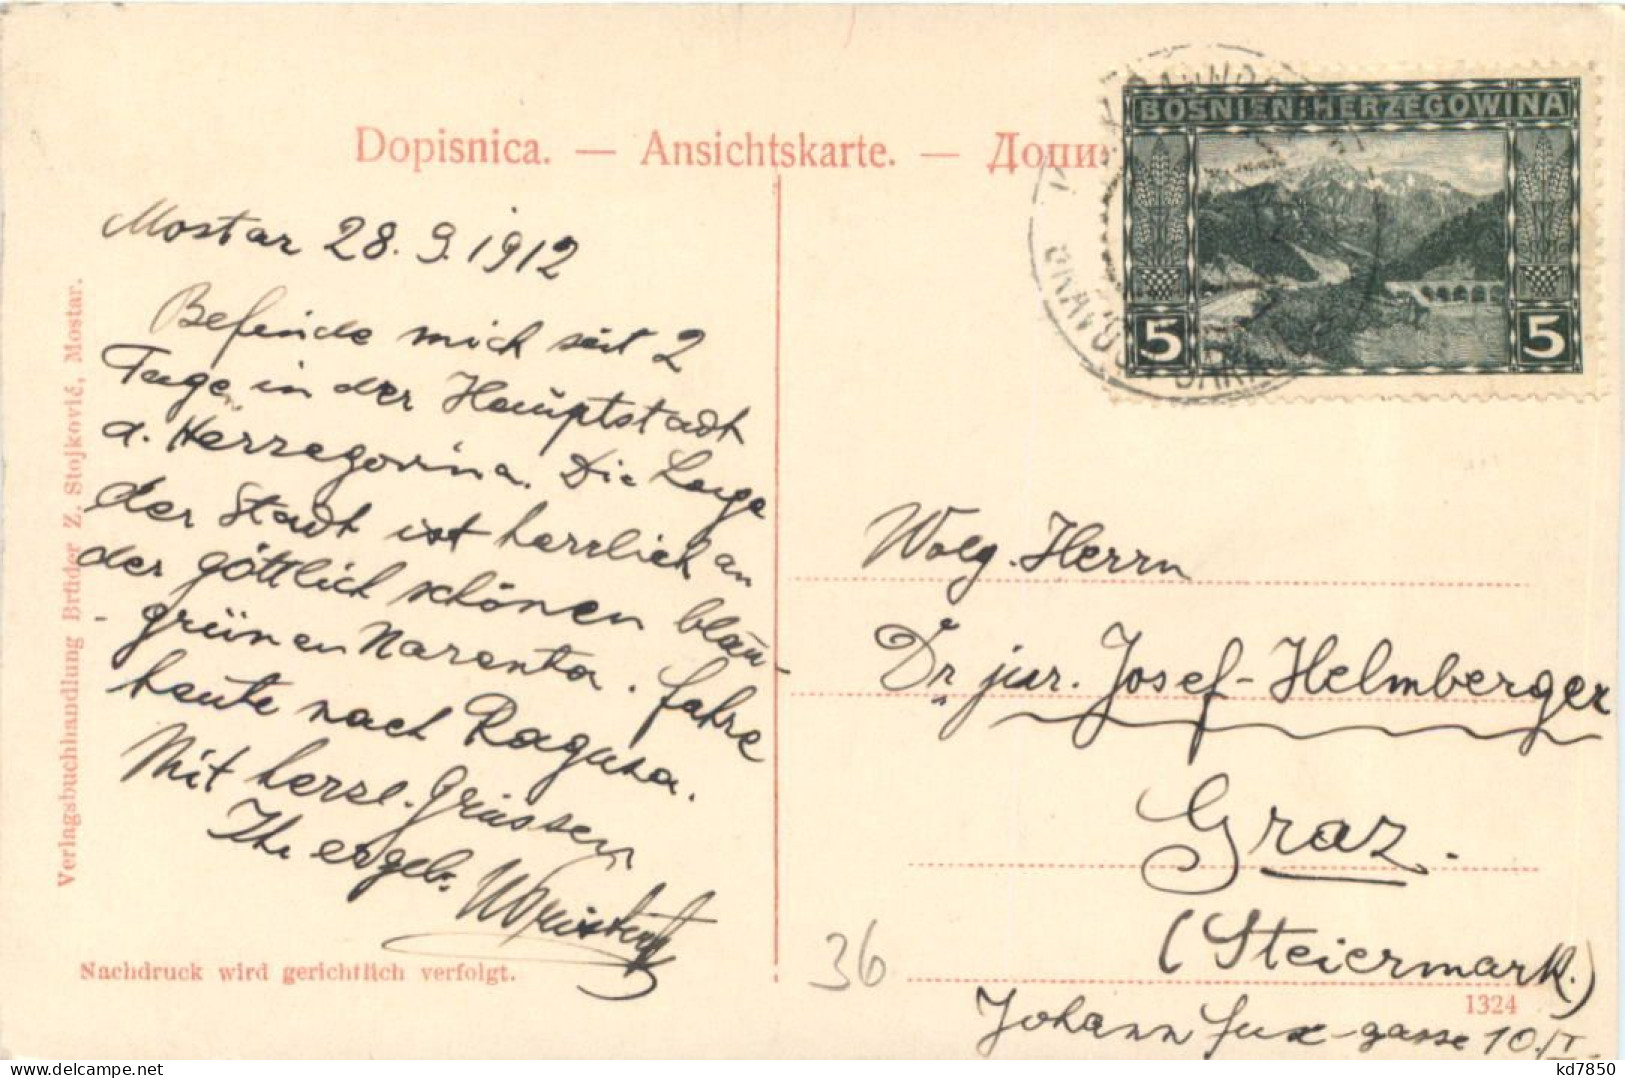 Dopisnica. — Ansichtskarte. —
BOSNIEN-HERZEGOWINA
5 5
Mostar 28. 9. 1912
Befinde mich seit 2
Tage in der Hauptstadt
d. Herzegovina. Die Lage
der Stadt ist herrlich an
der göttlich schönen blau-
- grünen Narenta. Fahre
heute nach Ragusa.
Mit herzl. Grüssen
Ihr ergeb.
Nachdruck wird gerichtlich verfolgt.
Verlagsbuchhandlung Brüder Z. Stojković, Mostar.
Herrn
Dr jur. Josef Helmberger
Graz.
(Steiermark.)
Johann Fux-gasse 10./I.
36
1324
Delcampe.net
kd7850